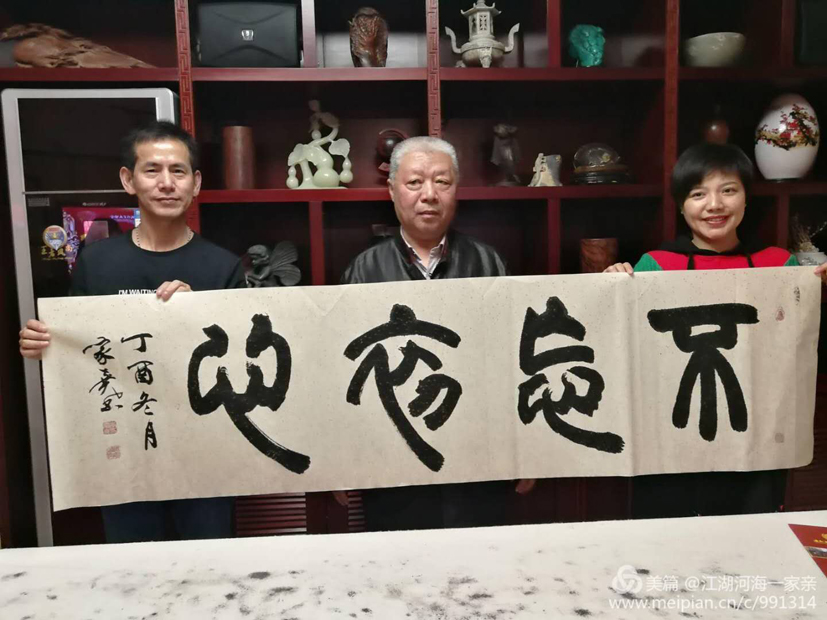 不忘初心
丁酉冬月
家
I'M WAITING
美篇 @江湖河海一家亲
www.meipian.cn/c/991314